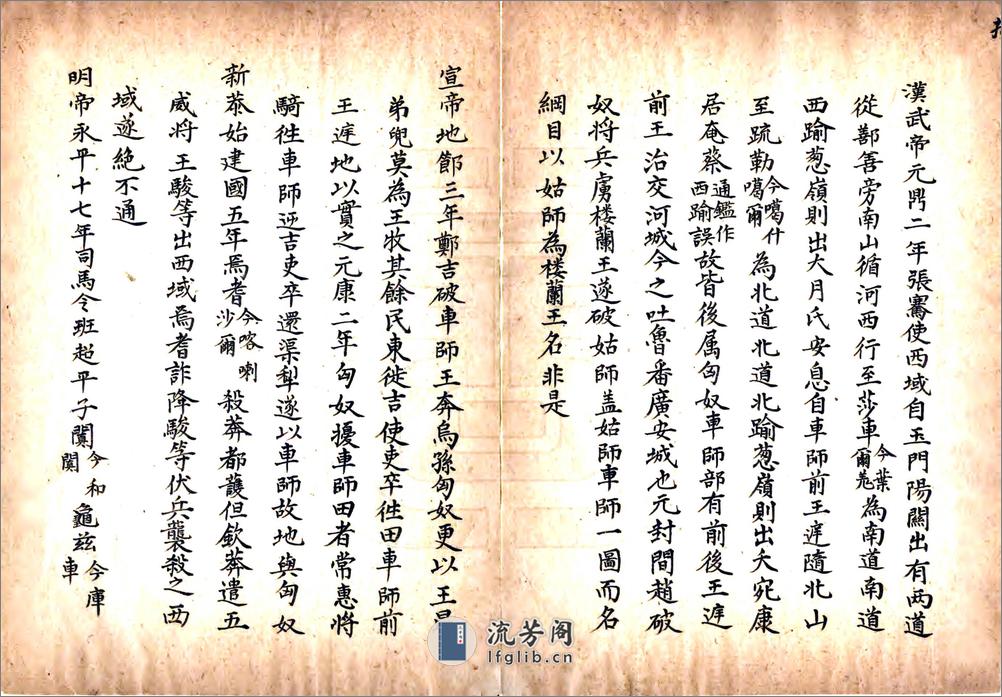 漢武帝元鼎二年張騫使西域自玉門陽關出有兩道
從鄯善旁南山循河西行至莎車今葉爾羌為南道南道
西踰葱嶺則出大月氏安息自車師前王庭隨北山
至疏勒今噶什噶爾為北道北道北踰葱嶺則出大宛康
居奄蔡通鑑作西踰誤故皆後属匈奴車師部有前後王庭
前王治交河城今之吐魯番廣安城也元封間趙破
奴将兵虜楼蘭王遂破姑師盖姑師車師一圖而名
綱目以姑師為楼蘭王名非是
宣帝地節三年鄭吉破車師王奔烏孫匈奴更以王
弟兜莫為王牧其餘民東徙吉使吏卒徃田車師前
王庭地以實之元康二年匈奴擾車師田者常惠将
騎徃車師迎吉吏卒還渠犁遂以車師故地與匈奴
新莽始建國五年焉耆今喀喇沙爾殺莽都護但欽莽遣五
威将王駿等出西域焉耆詐降駿等伏兵襲殺之西
域遂絕不通
明帝永平十七年司馬令班超平于闐今和闐龜兹今庫車
流芳阁
lfglib.cn